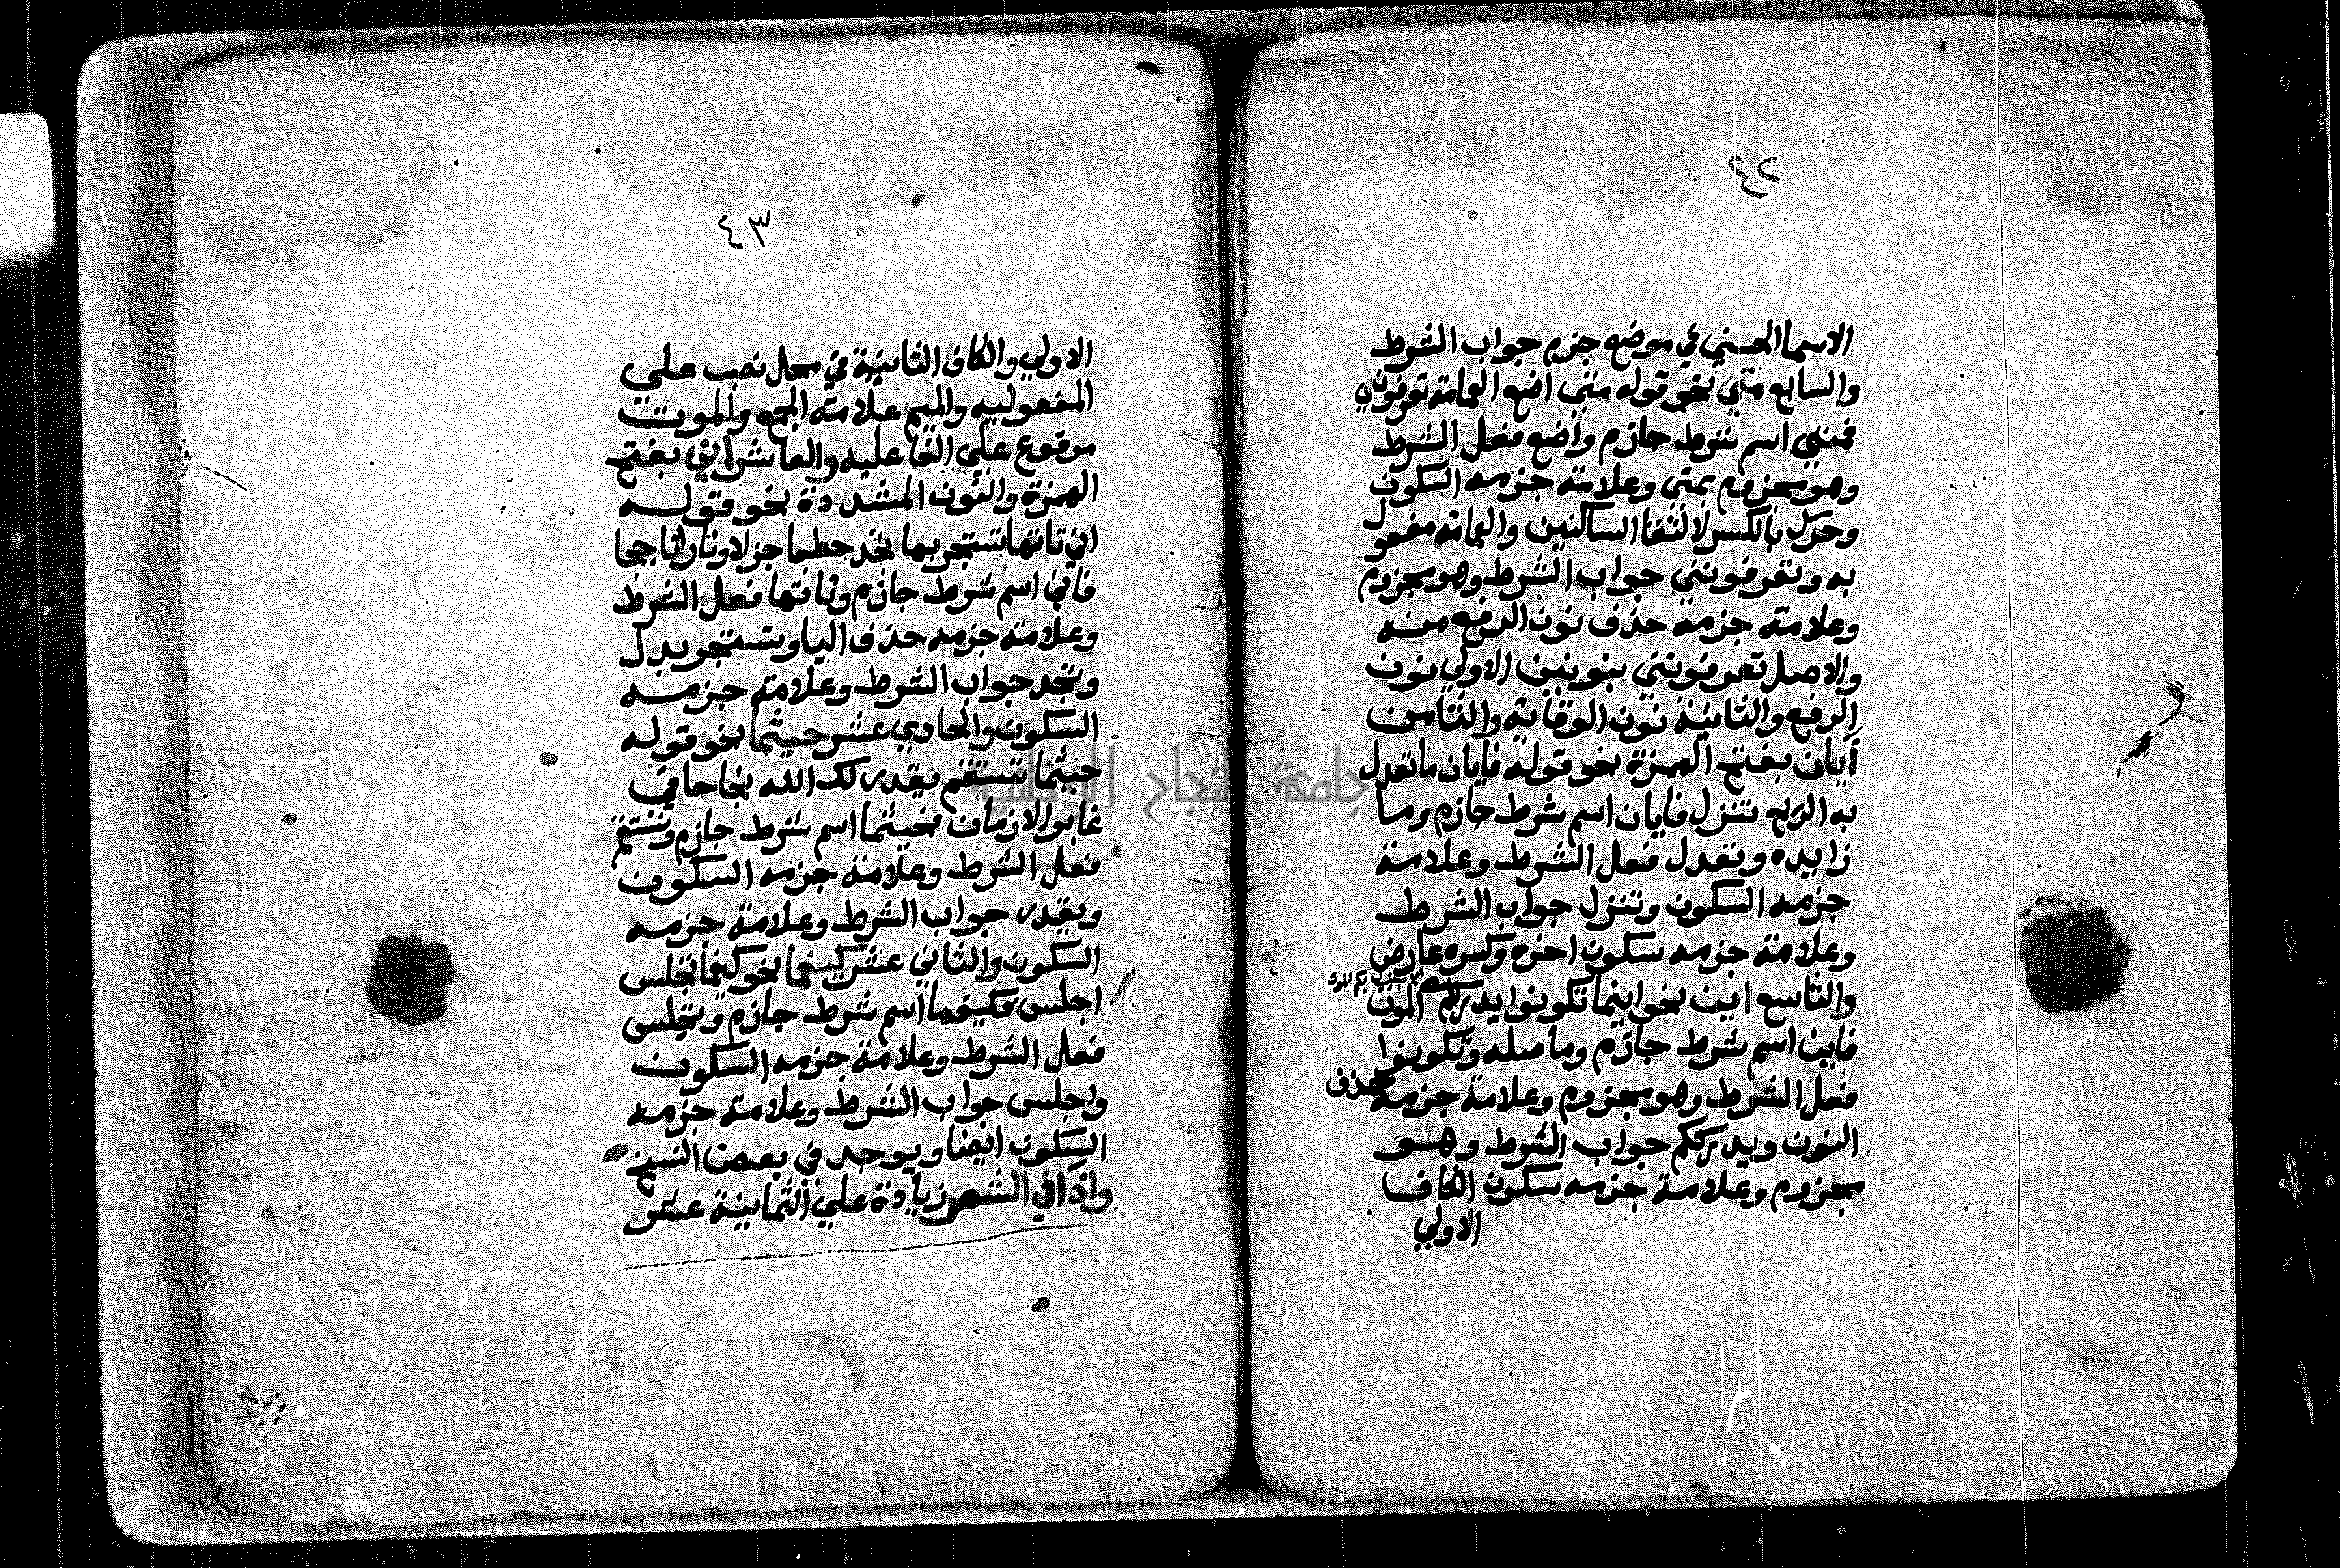 ٤٢
الاسما الحسني في موضع جزم جواب الشرط
والسابع متي نحو قوله متي اضع العمامة تعرفوني
فمتي اسم شرط جازم واضع فعل الشرط
وهو مجزوم بمتي وعلامة جزمه السكون
وحرك بالكسر لالتقا الساكنين والعمامة مفعول
به وتعرفونني جواب الشرط وهو مجزوم
وعلامة جزمه حذف نون الرفع منه
والاصل تعرفونني بنونين الاولي نون
الرفع والثانية نون الوقاية والثامن
أيان بفتح الهمزة نحو قوله فايان ما تعدل
به الريح تنزل فايان اسم شرط جازم وما
زايده وتعدل فعل الشرط وعلامة
جزمه السكون وتنزل جواب الشرط
وعلامة جزمه سكون اخره وكسره عارض
والتاسع اين نحو اينما تكونوا يدرككم الموت
فاين اسم شرط جازم وما صله وتكونوا
فعل الشرط وهو مجزوم وعلامة جزمه حذف
النون ويدرككم جواب الشرط وهو
مجزوم وعلامة جزمه سكون الكاف
الاولي
٤٣
الاولي والكاف الثانية في محل نصب علي
المفعوليه والميم علامة الجمع والموت
مرفوع علي الفاعليه والعاشر أني بفتح
الهمزة والنون المشددة نحو قوله
اني تاتها تستجر بها تجد حطبا جزلا ونارا تاججا
فاني اسم شرط جازم وتاتها فعل الشرط
وعلامة جزمه حذف اليا وتستجر بدل
وتجد جواب الشرط وعلامة جزمه
السكون والحادي عشر حيثما نحو قوله
حيثما تستقم يقدر لك الله نجاحا في
غابر الازمان فحيثما اسم شرط جازم وتستقم
فعل الشرط وعلامة جزمه السكون
ويقدر جواب الشرط وعلامة جزمه
السكون والثاني عشر كيفما نحو كيفما تجلس
اجلس فكيفما اسم شرط جازم وتجلس
فعل الشرط وعلامة جزمه السكون
واجلس جواب الشرط وعلامة جزمه
السكون ايضا ويوجد في بعض النسخ
واذا في الشعر زيادة علي الثمانية عشر
جامعة النجاح الوطنية